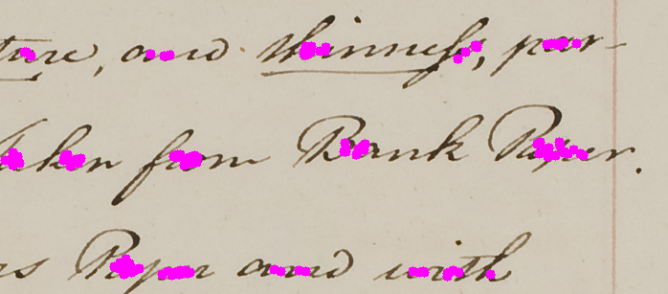 ture, and thinness, par-
taken from Bank Paper.
rs Paper and with